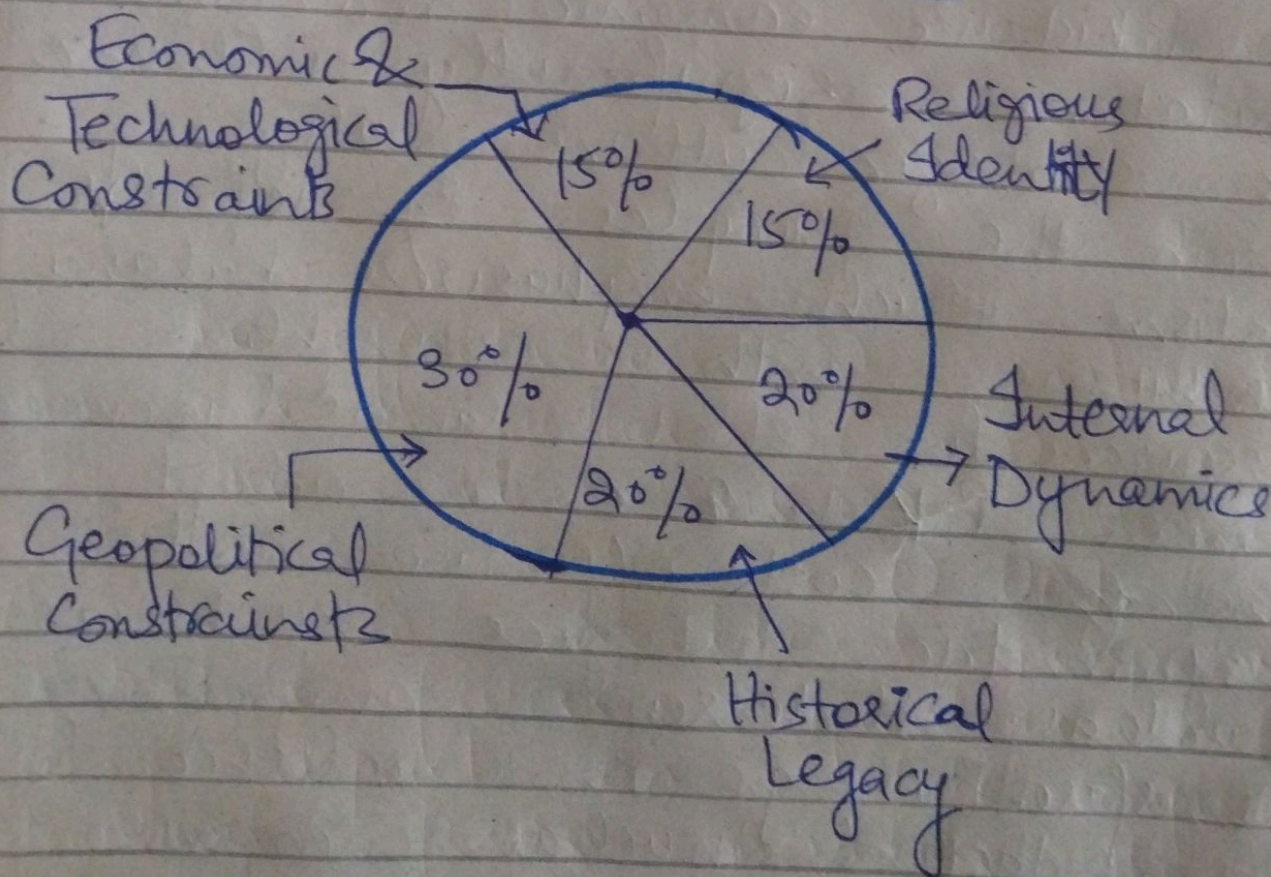 Economic &
Technological
Constraints
15%
Religious
Identity
15%
30%
20%
Internal
Dynamics
20%
Geopolitical
Constrainsts
Historical
Legacy